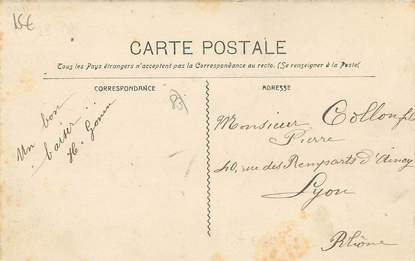 15€
CARTE POSTALE
Tous les Pays étrangers n'acceptent pas la Correspondance au recto. (Se renseigner à la Poste)
CORRESPONDANCE
ADRESSE
Un bon
baiser
H. Gonin
Monsieur
Pierre
40, rue des Remparts d'Ainay
Lyon
Rhône